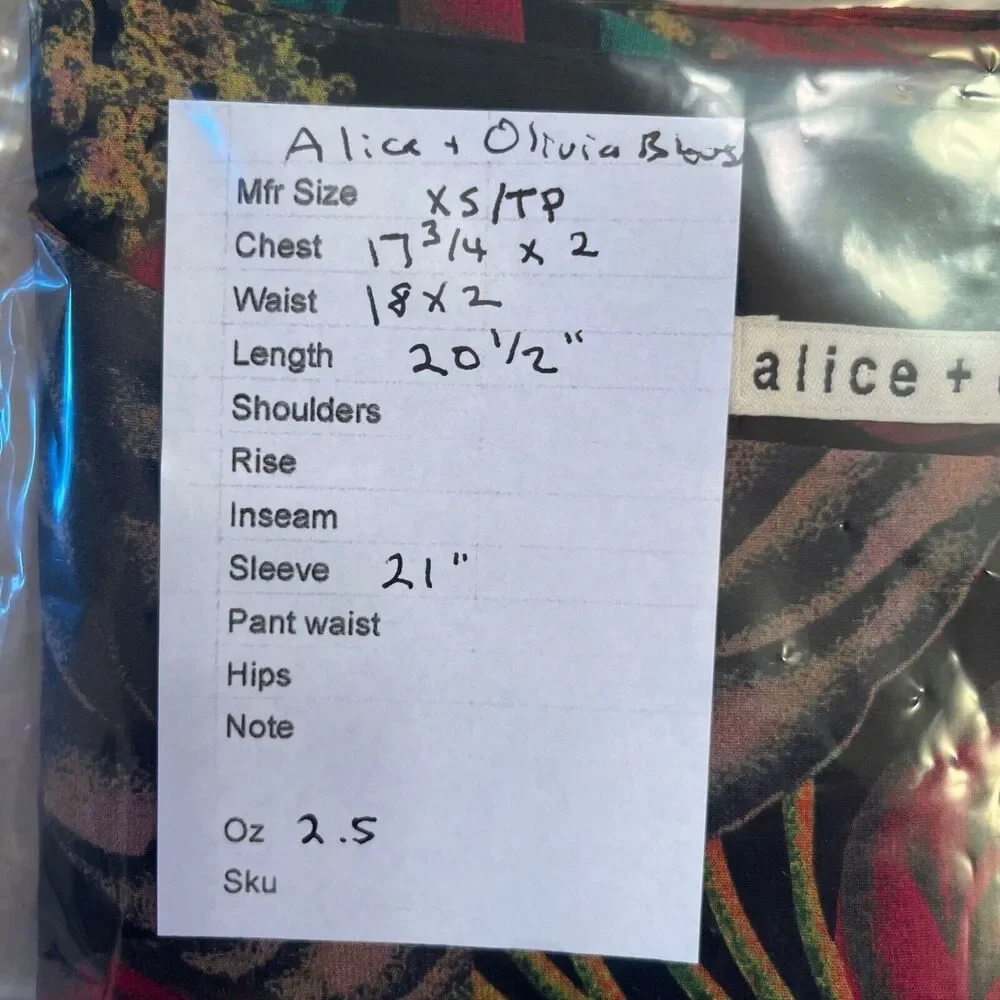 Alice + Olivia Blous
Mfr Size XS/TP
Chest 17 3/4 x 2
Waist 18 x 2
Length 20 1/2"
Shoulders
Rise
Inseam
Sleeve 21"
Pant waist
Hips
Note
Oz 2.5
Sku
alice +